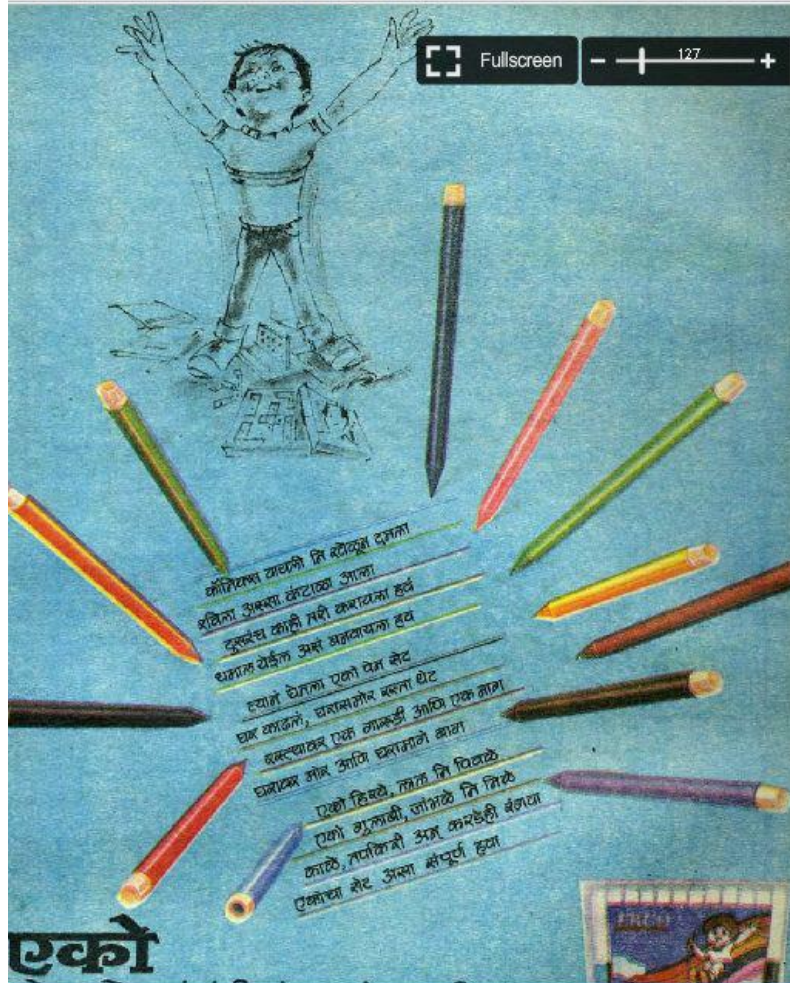 Fullscreen
127
कॉमिक्स वाचली नि खेळून दमला
रविला अस्सा कंटाळा आला
दूसरंच काही तरी करायला हवं
धमाल येईल असं बनवायला हवं
त्यानं घेतला एको पेन सेट
घर काढलं, घरासमोर रस्ता थेट
रस्त्यावर एक गारुडी आणि एक नाग
घरावर मोर आणि घरामागे बाग
एको हिरवे, लाल नि पिवळे
एको गुलाबी, जांभळे नि निळे
काळे, तपकिरी अन् करडेही रंगवा
एकोचा सेट असा संपूर्ण हवा
एको